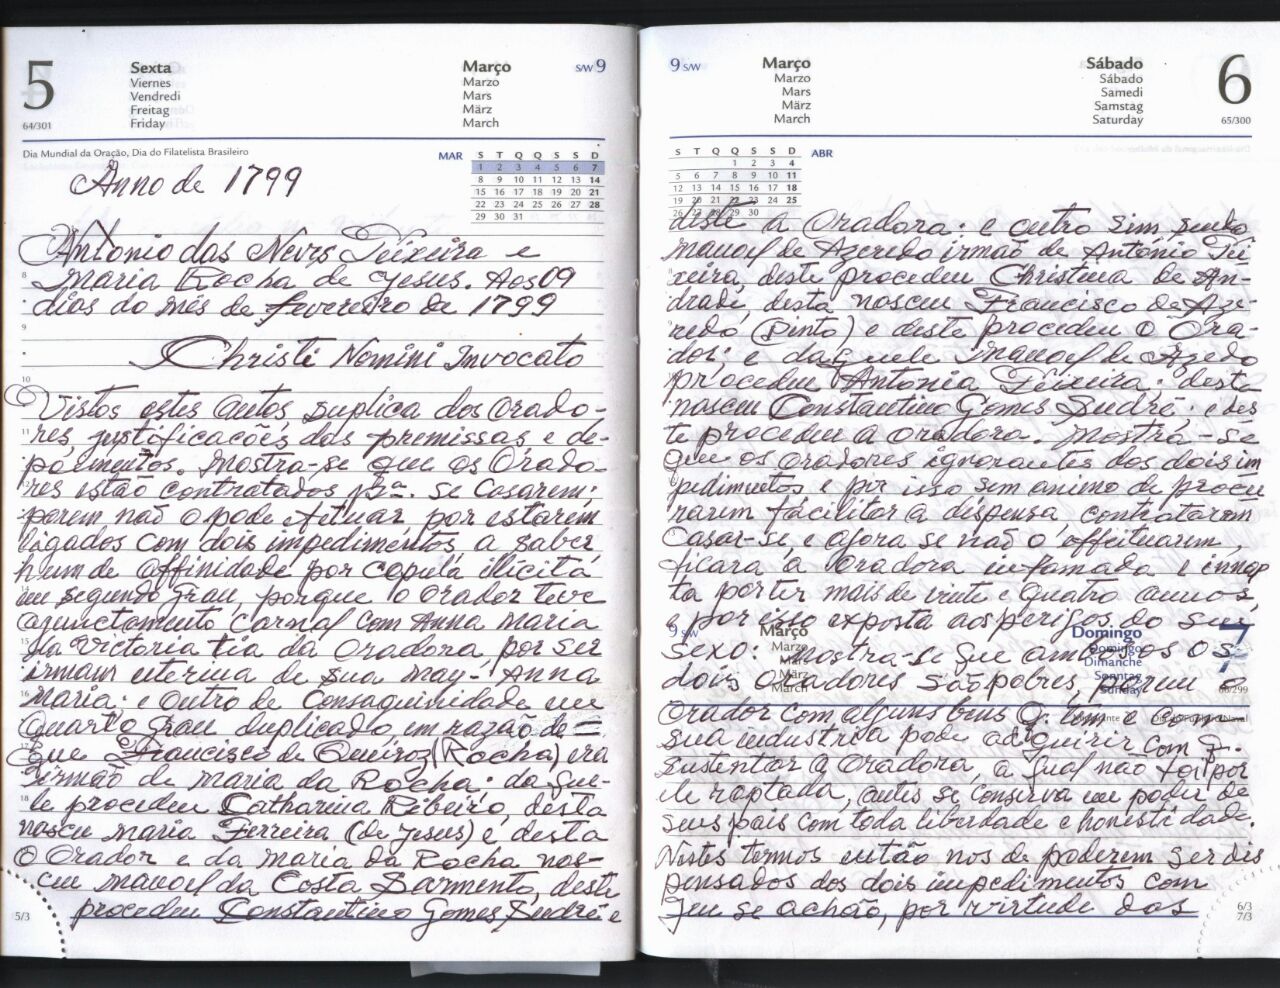 5
Sexta
Viernes
Vendredi
Freitag
Friday
Março
Marzo
Mars
März
March
S/W 9
64/301
Dia Mundial da Oração, Dia do Filatelista Brasileiro
MAR
S T Q Q S S D
1 2 3 4 5 6 7
8 9 10 11 12 13 14
15 16 17 18 19 20 21
22 23 24 25 26 27 28
29 30 31
Anno de 1799
Antonio das Neves Teixeira e
Maria Rocha de Jesus. Aos 09
dias do mês de fevereiro de 1799
Christi Nomini Invocato
Vistos estes autos, suplica dos Orado-
res, justificações das premissas e de-
poimentos. Mostra-se que os Orado-
res estão contratados pª. se Casarem;
porem não o pode efetuar por estarem
ligados com dois impedimentos, a saber
hum de affinidade por copula illicita
em segundo grau, porque o Orador teve
ajunctamento Carnal com Anna Maria
da Victoria tia da Oradora, por ser
irmam uterina de sua may- Anna
Maria; e outro de Consaguinidade em
Quarto grau duplicado, em razão de =
Que Francisco de Queiroz (Rocha) era
irmão de Maria da Rocha: da que-
le procedeu Catharina Ribeiro, desta
nasceu Maria Ferreira (de Jesus) e desta
O Orador e da Maria da Rocha nas-
ceu Manoel da Costa Sarmento, deste
procedeu Constantino Gomes Sudré e
5/3
9 S/W
Março
Marzo
Mars
März
March
Sábado
Sábado
Samedi
Samstag
Saturday
6
65/300
ABR
S T Q Q S S D
1 2 3 4
5 6 7 8 9 10 11
12 13 14 15 16 17 18
19 20 21 22 23 24 25
26 27 28 29 30
deste a Oradora: e outro sim sendo
Manoel de Azeredo irmão de António Tei
xeira, deste procedeu Christina de An-
drade, desta nasceu Francisco de Aze-
redo (Pinto) e deste procedeu o Ora-
dor; e daquele Manoel de Azedo
procedeu Antonia Teixeira; desta
nasceu Constantino Gomes Sudré: e des
te procedeu a Oradora. Mostra-se
que os Oradores ignorantes dos dois im
pedimentos e por isso sem animo de procu
rarem facilitar a dispensa, contratarem
Casar-se, e agora se não o effeituarem,
ficara a Oradora infamada e innup
ta por ter mais de vinte e quatro annos,
e por isso exposta aos perigos do seu
9 S/W
Março
Marzo
Mars
März
March
Domingo
Domingo
Dimanche
Sonntag
Sunday
7
66/299
sexo: Mostra-se que ambos os
dois Oradores são pobres, porem o
Orador com alguns bens q. tem e com
sua industria pode adquirir com q.
sustentar a Oradora, a qual não foi por
ele raptada, antes se conserva em poder de
seus pais com toda liberdade e honestidade.
Nestes termos então nos de poderem ser dis
pensados dos dois impedimentos com
que se achão, por virtude das
6/3
7/3